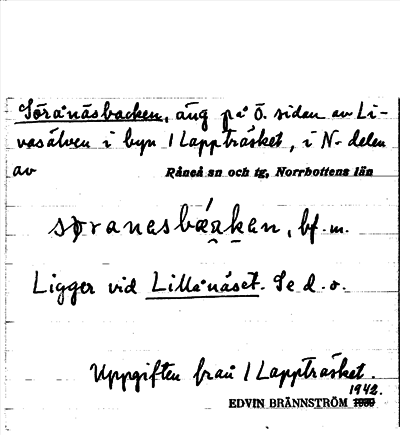 Söranäsbacken, äng på ö. sidan av Li-
vasälven i byn 1 Lappträsket, i N. delen
av Råneå sn och tg, Norrbottens län
bf. m.
Ligger vid Lillånäset. Se d. o.
Uppgiften från 1 Lappträsket.
1942.
EDVIN BRÄNNSTRÖM 1930